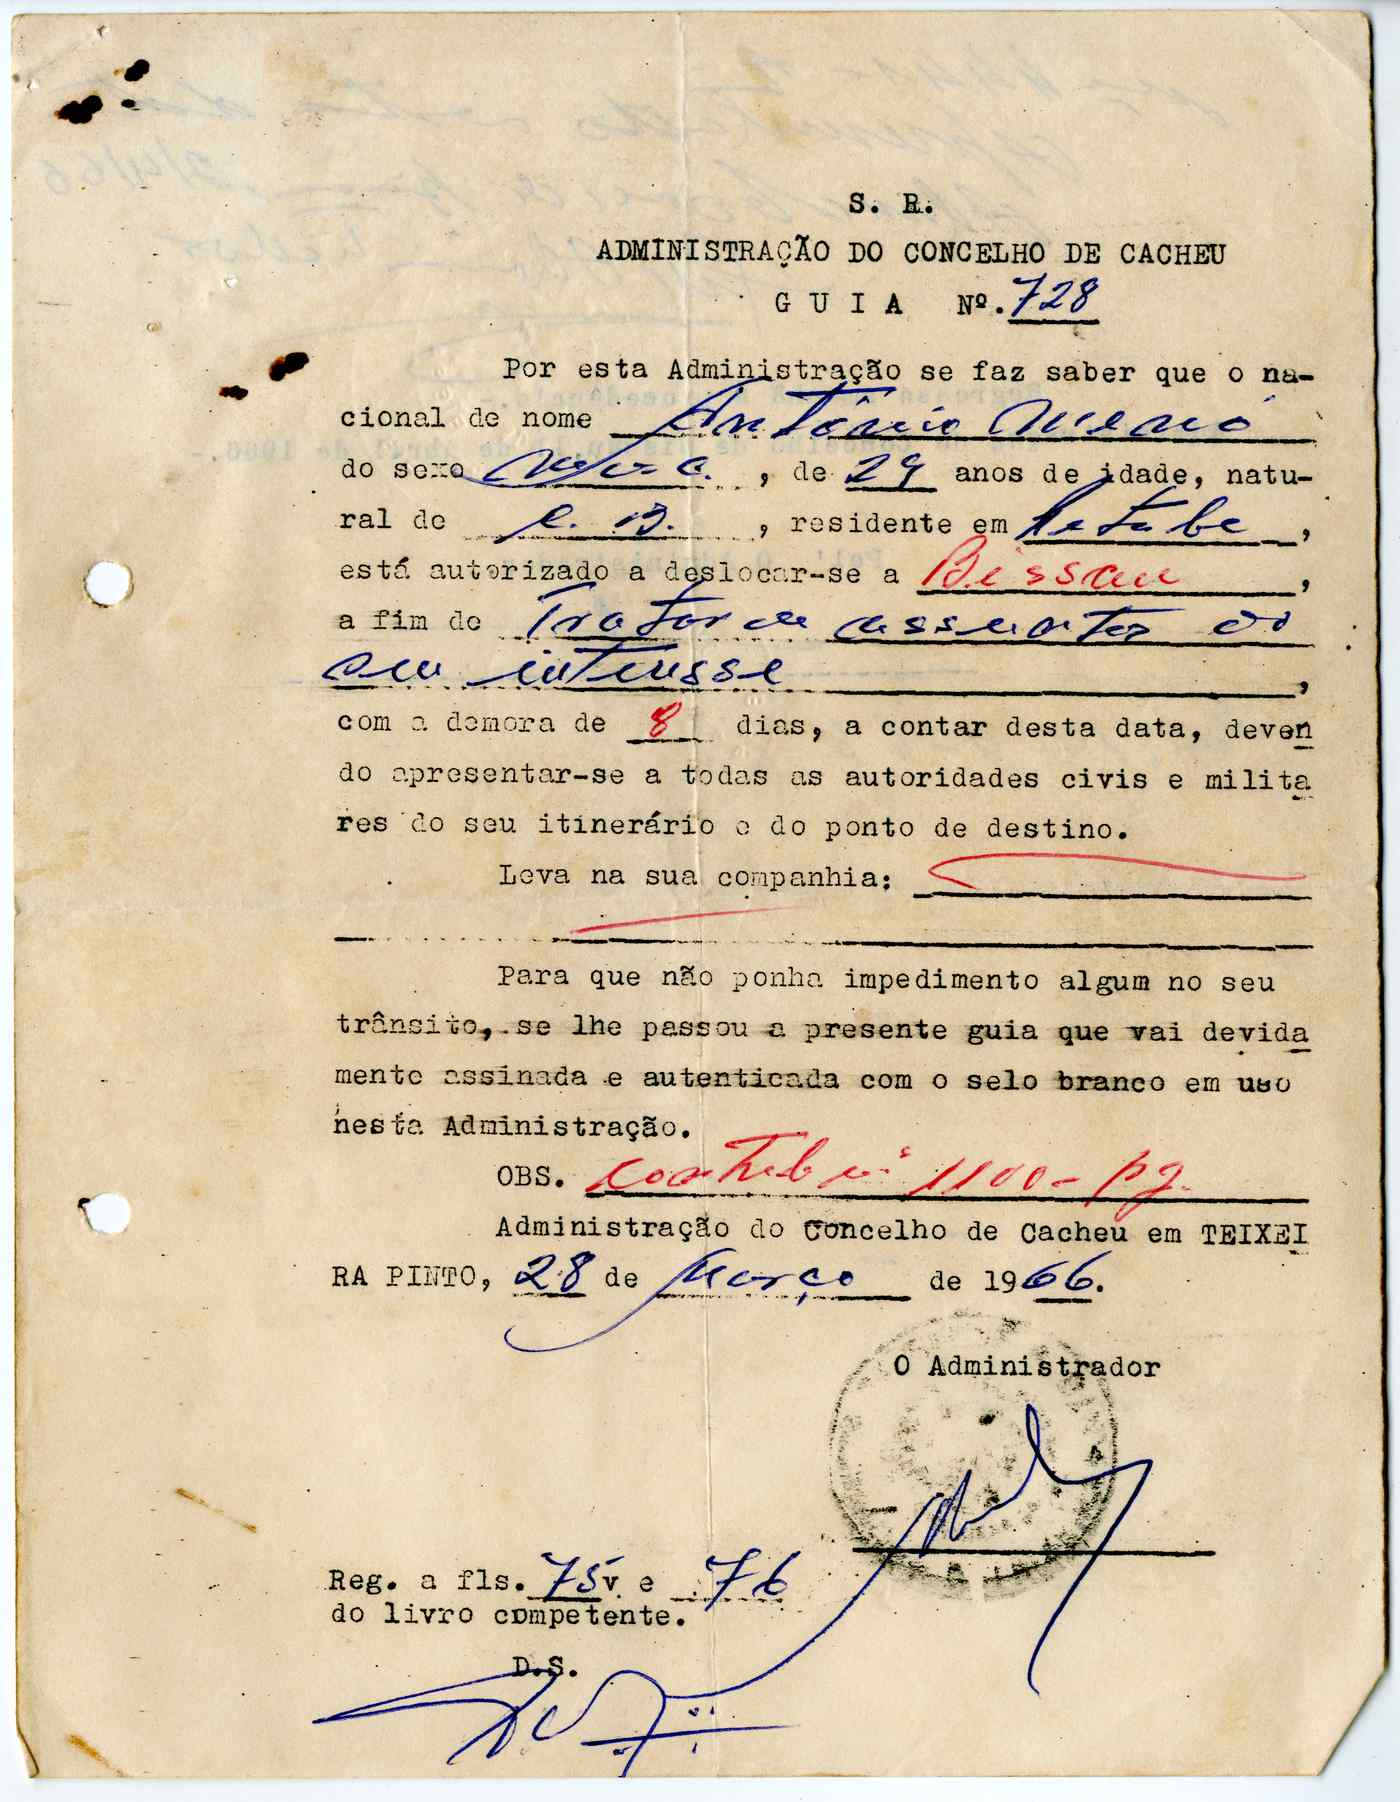 S. R.
ADMINISTRAÇÃO DO CONCELHO DE CACHEU
G U I A Nº. 728
Por esta Administração se faz saber que o na-
cional de nome António
do sexo Masc. , de 29 anos de idade, natu-
ral de C. B. , residente em ,
está autorizado a deslocar-se a Bissau ,
a fim de Tratar de assuntos do
seu interesse ,
com a demora de 8 dias, a contar desta data, deven
do apresentar-se a todas as autoridades civis e milita
res do seu itinerário e do ponto de destino.
Leva na sua companhia:
Para que não ponha impedimento algum no seu
trânsito, se lhe passou a presente guia que vai devida
mente assinada e autenticada com o selo branco em uso
nesta Administração.
OBS. Contrib nº 1100-pg.
Administração do Concelho de Cacheu em TEIXEI
RA PINTO, 28 de Março de 1966.
O Administrador
Reg. a fls. 75v e 76
do livro competente.
D.S.